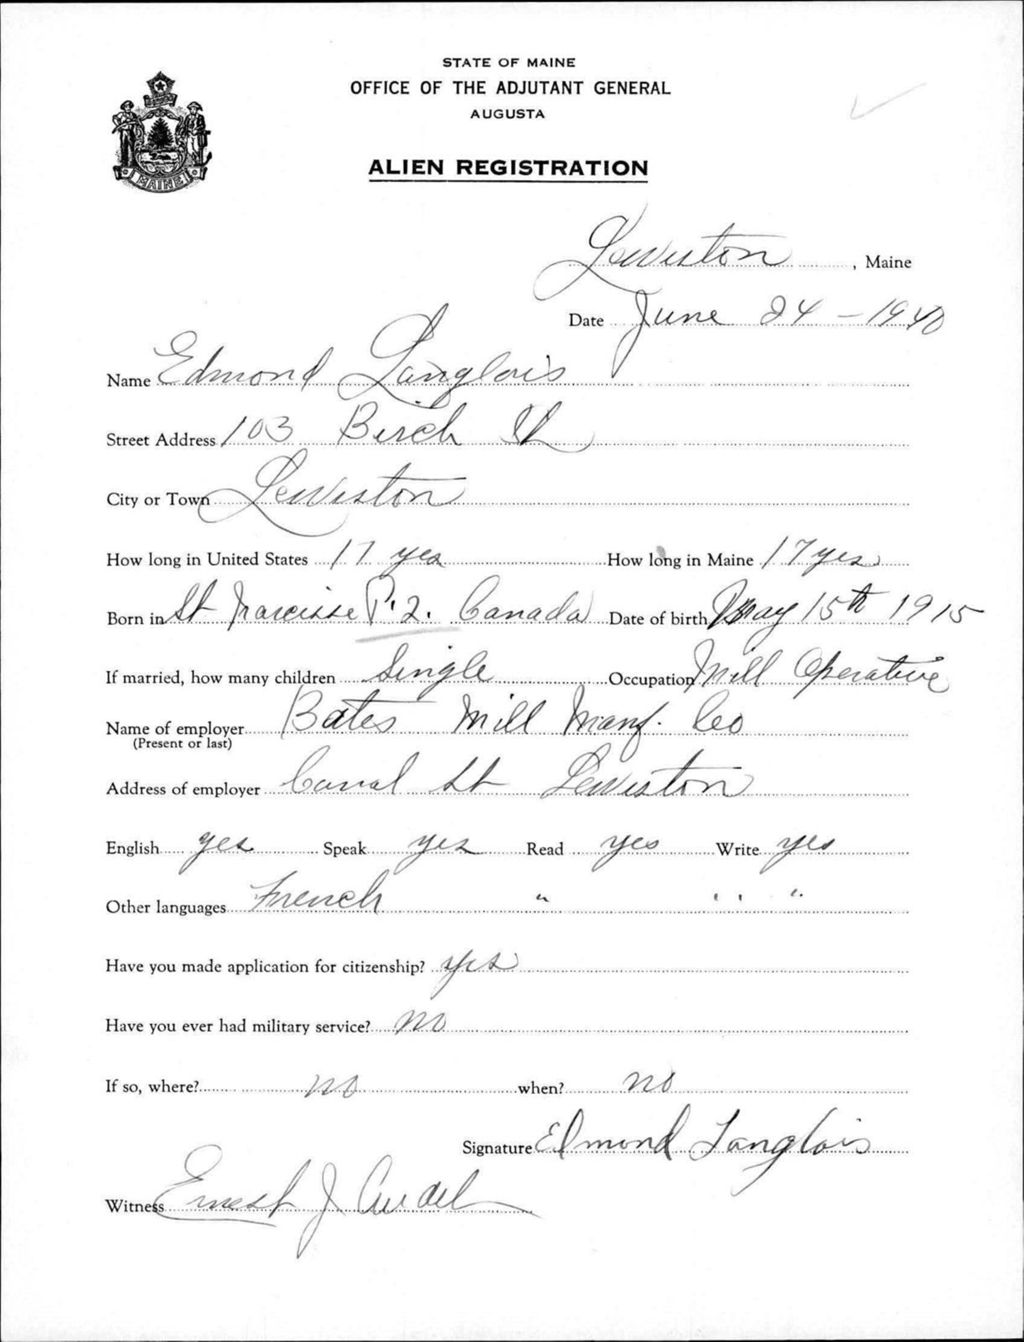 STATE OF MAINE
OFFICE OF THE ADJUTANT GENERAL
AUGUSTA
MAINE
ALIEN REGISTRATION
Lewiston, Maine
Date June 24 - 1940
Name Edmond Langlois
Street Address 103 Birch St
City or Town Lewiston
How long in United States 17 yrs How long in Maine 17 yrs
Born in St Narcisse P.Q. Canada Date of birth May 15th 1915
If married, how many children Single Occupation Mill Operative
Name of employer Bates Mill Manf. Co
(Present or last)
Address of employer Canal St Lewiston
English yes Speak yes Read yes Write yes
Other languages French " " "
Have you made application for citizenship? yes
Have you ever had military service? no
If so, where? no when? no
Signature Edmond Langlois
Witness Ernest J